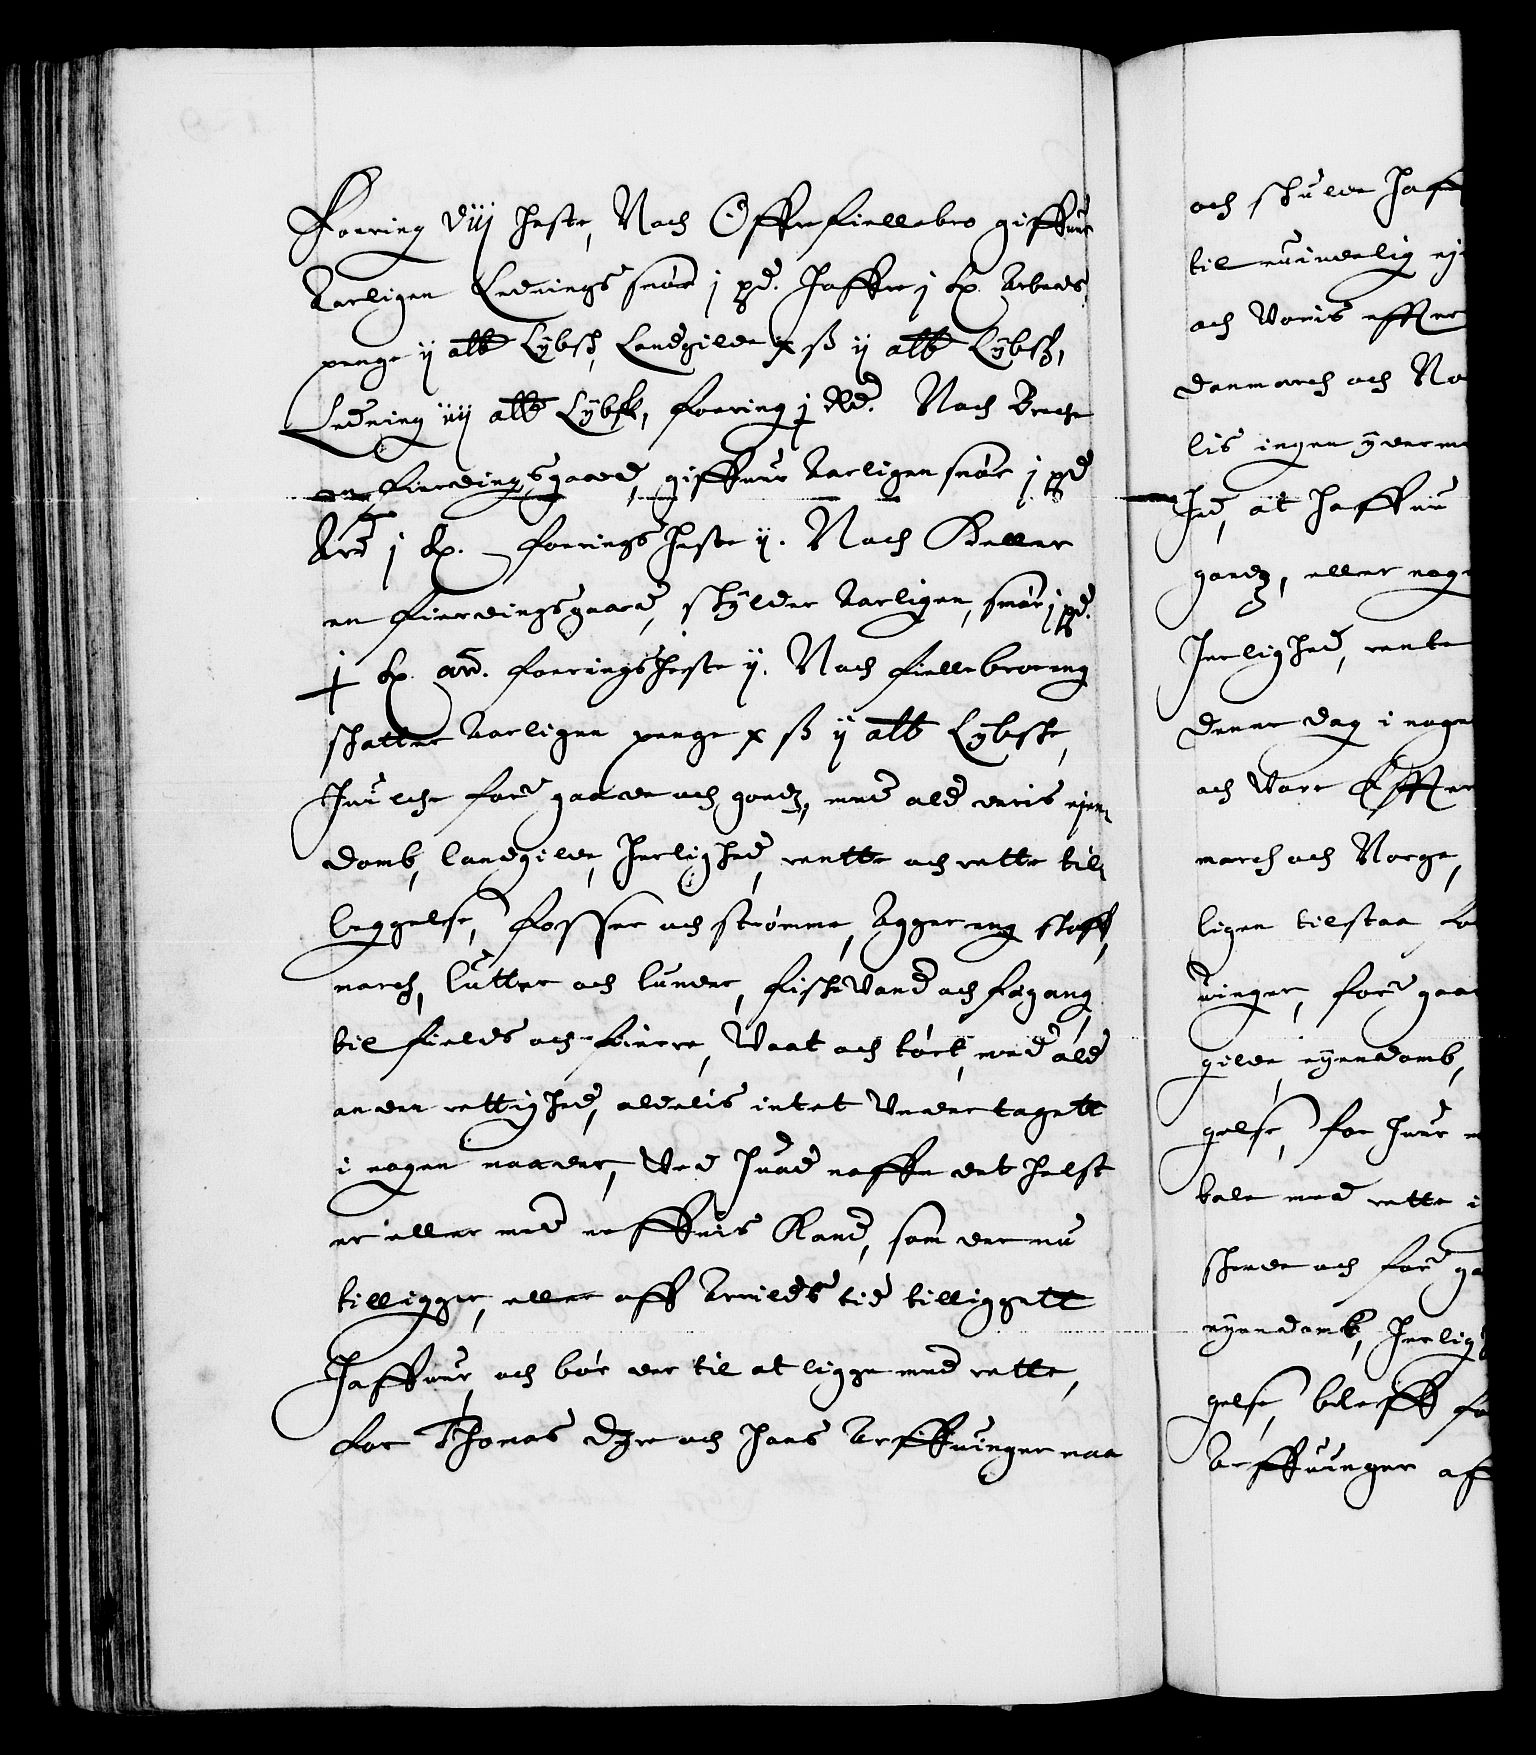 Foering viij heste, Noch Øffrefiellebro giffuer
Aarligen Lednings smør j pd. Haffre j tp. Arbeds
penge ij alb Lybsch, Landgilde x ß ij alb Lybsch,
Ledning iiij alb Lybsk, foering j Rd. Noch Breche
en fierdingsgaard, giffuer Aarligen smør j pd
j tp. foerings heste ij. Noch Keller
en fierdingsgaard, skylder Aarligen, smør j pd.
j tp. foeringsheste ij. Noch fiellebroeng
skatter Aarligen penge x ß ij alb Lybske,
Huilche ford gaarde och godz, med ald deris ejen¬
domb, landgilde, Herlighed, rentte och rette til¬
leggelse, fosser och strømme, Agger eng skoff,
march, lutter och lunder, fiskevand och fægang,
til fields och fierre, Vaat och tørt, med ald
anden rettighed, aldelis intet undertagett
i nogen maader, ved huad naffn det helst
er eller med neffnis kand, som der nu
tilligger, eller aff Arrilds tid tilliggett
haffuer, och bør der til at ligge med rette,
for Thomas Dyre och hans Arffuinger naa
och skulde haf
til euinderlig ej
och Voris effter
Danmarch och No
lis ingen yderme
hed, at haffue
godz, eller nog
Herlighed, rente
denne dag i noge
och Vore Effter
march och Norge,
ligen tilstaa
uinger, ford gaa
gilde, eyendomb,
gelse, for huer
tale med rette i
skeede och ford ga
eyendomb, Herlig
gelse, bleff fo
Arffuinger af